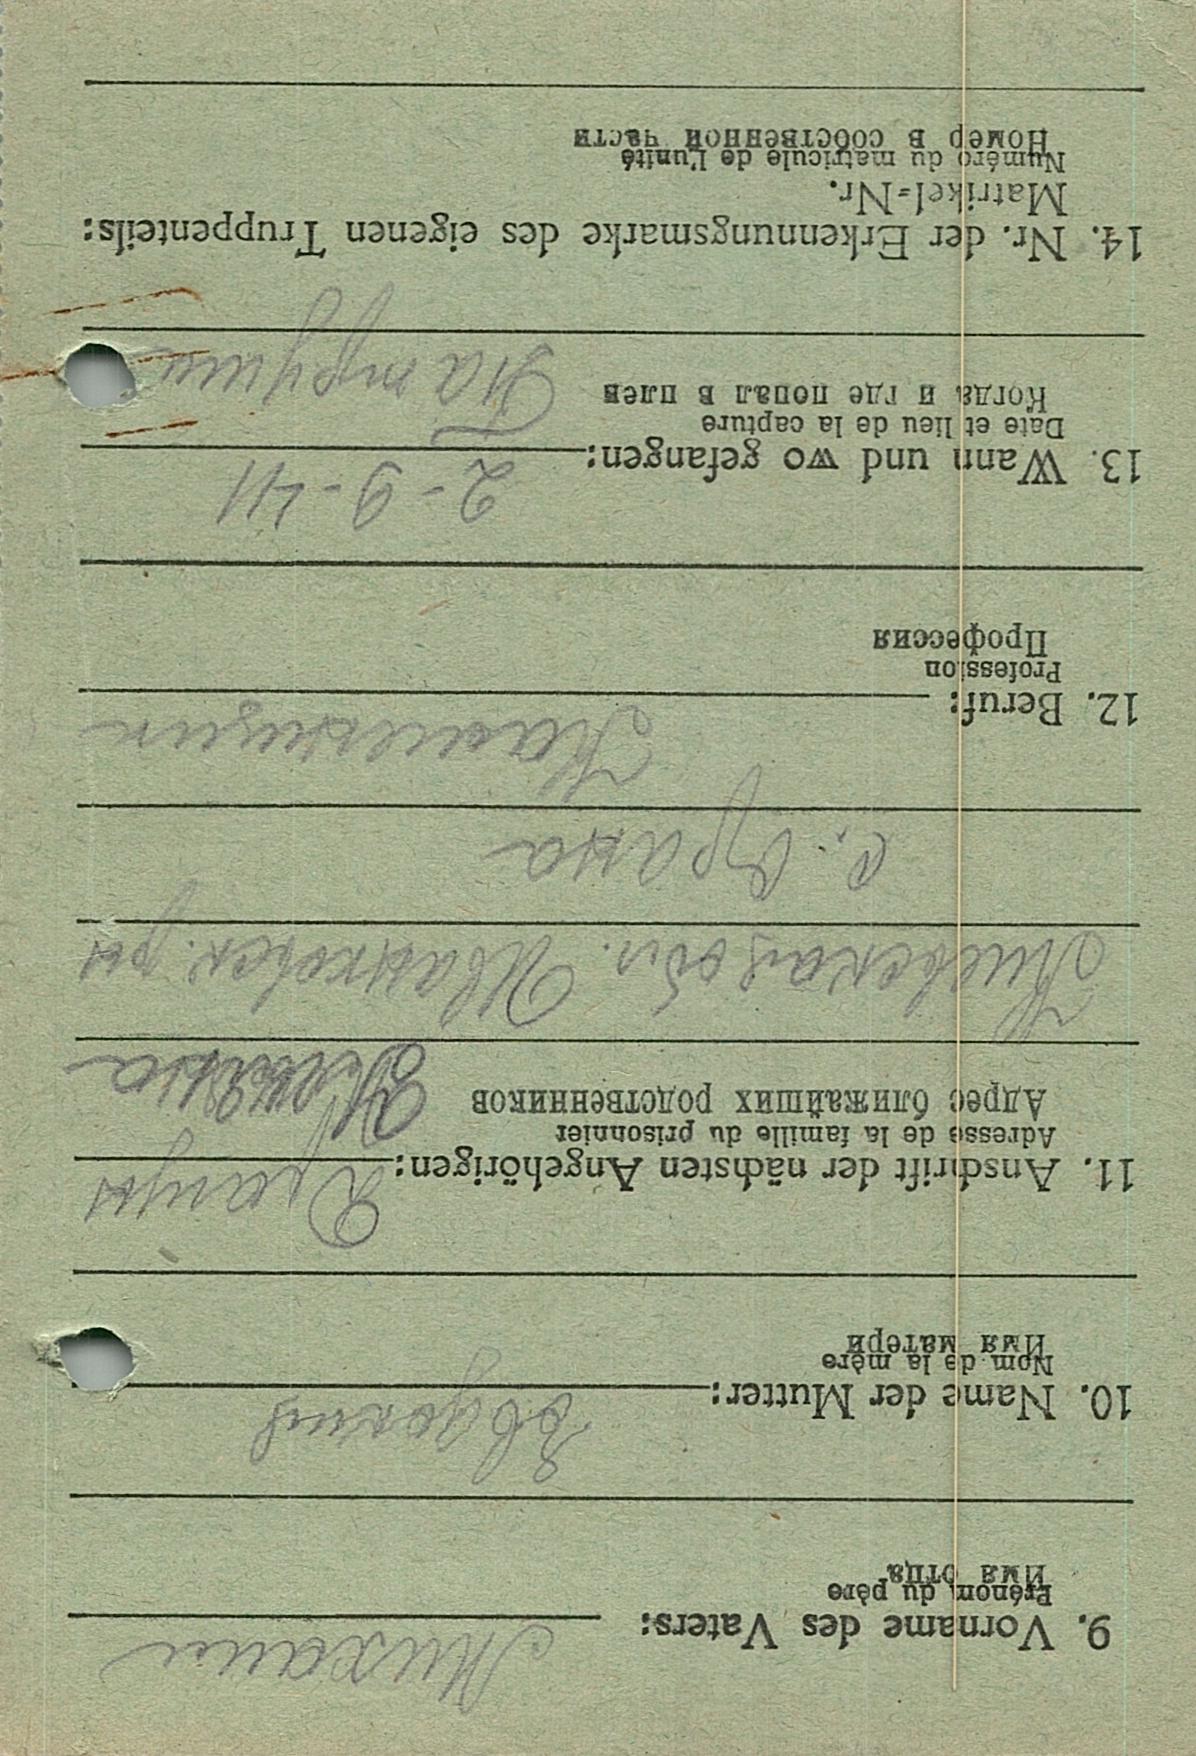 9. Vorname des Vaters: Михаил
Prénom du père
Имя отца
10. Name der Mutter: Євдокия
Nom de la mère
Имя матери
11. Anschrift der nächsten Angehörigen:
Adresse de la famille du prisonnier
Адрес ближайших родственников
Киевская обл. Иванковск. рн
с.
12. Beruf:
Profession
Профессия
13. Wann und wo gefangen: 2-9-41
Date et lieu de la capture
Когда и где попал в плен
14. Nr. der Erkennungsmarke des eigenen Truppenteils:
Matrikel=Nr.
Numéro du matricule de L'unité
Номер в собственной части